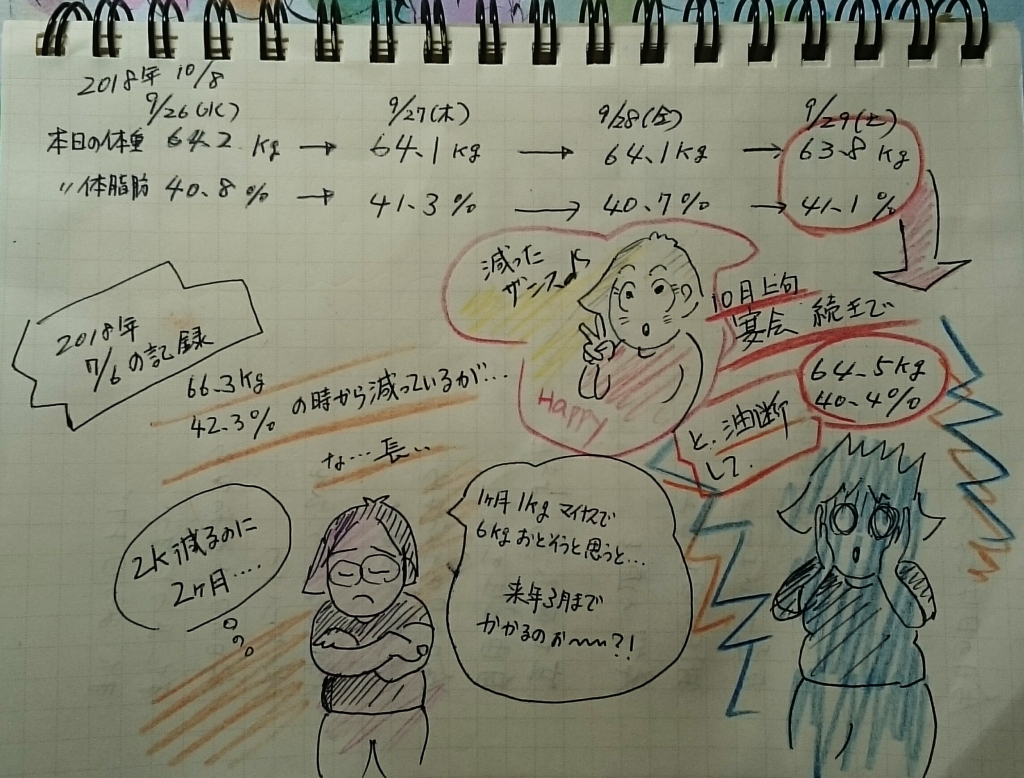 2018年 10/8
9/26(水) 9/27(木) 9/28(金) 9/29(土)
本日の体重 64.2 kg → 64.1 kg → 64.1kg → 63.8 kg
〃体脂肪 40.8% → 41.3% → 40.7% → 41.1%
減った
ザンス♪
Happy
10月上旬
宴会 続きで
64.5kg
40.4%
と、油断
して、
2018年
7/6の記録
66.3kg
42.3%
の時から減っているが…
な…長い
2k減るのに
2ヶ月….
1ヶ月1kg マイナスで
6kgおとそうと思うと…
来年3月まで
かかるのぉ〜〜?!